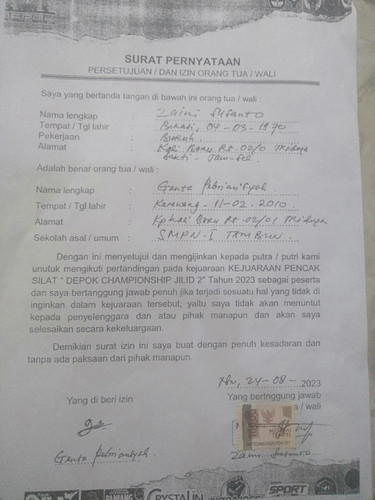 SURAT PERNYATAAN
PERSETUJUAN / DAN IZIN ORANG TUA / WALI
Saya yang bertanda tangan di bawah ini orang tua / wali :
Nama lengkap : Zaini Susanto
Tempat / Tgl lahir : Bekasi, 04-03-1970
Pekerjaan : Buruh
Alamat : Rt 02/0
Adalah benar orang tua / wali :
Nama lengkap : Genta Febriansyah
Tempat / Tgl lahir : Karawang - 11-02.2010.
Alamat : Rt 02/01
Sekolah asal / umum : SMPN-I TAMBUN.
Dengan ini menyetujui dan mengijinkan kepada putra / putri kami
unutuk mengikuti pertandingan pada kejuaraan KEJUARAAN PENCAK
SILAT " DEPOK CHAMPIONSHIP JILID 2" Tahun 2023 sebagai peserta
dan saya bertanggung jawab penuh jika terjadi sosuatu hal yang tidak di
inginkan dalam kejuaraan tersebut, yaitu saya tidak akan menuntut
kepada penyelenggara dan atau pihak manapun dan akan saya
selesaikan secara kekeluargaan.
Demikian surat izin ini saya buat dengan penuh kesadaran dan
tanpa ada paksaan dari pihak manapun.
24-08-2023
Yang di beri izin
Yang bertnggung jawab
a / wali
Genta Febriansyah.
Zaini Susanto
CRYSTALIN
SPORT